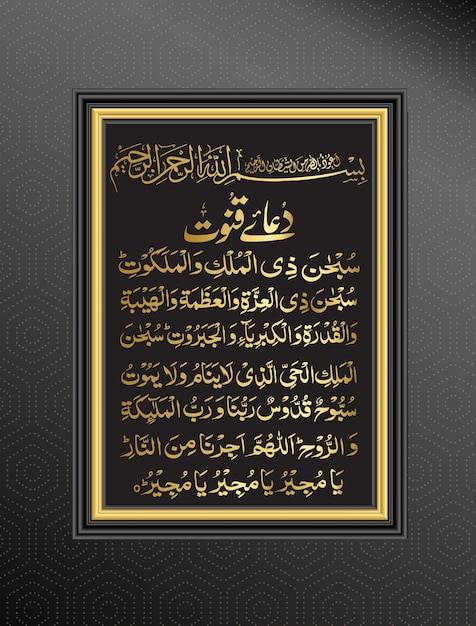 اعوذ باللہ من الشیطان الرجیم
بِسْمِ اللهِ الرَّحْمٰنِ الرَّحِيْمِ
دُعائے قنوت
سُبْحٰنَ ذِی الْمُلْكِ وَالْمَلَكُوْتِ
سُبْحٰنَ ذِی الْعِزَّةِ وَالْعَظَمَةِ وَالْهَيْبَةِ
وَالْقُدْرَةِ وَالْكِبْرِيَآءِ وَالْجَبَرُوْتِ سُبْحٰنَ
الْمَلِكِ الْحَيِّ الَّذِیْ لَايَنَامُ وَلَا يَمُوْتُ
سُبُّوْحٌ قُدُّوْسٌ رَبُّنَا وَرَبُّ الْمَلٰٓئِكَةِ
وَالرُّوْحِ اَللّٰهُمَّ اَجِرْنَا مِنَ النَّارِ
يَا مُجِيْرُ يَا مُجِيْرُ يَا مُجِيْرُ